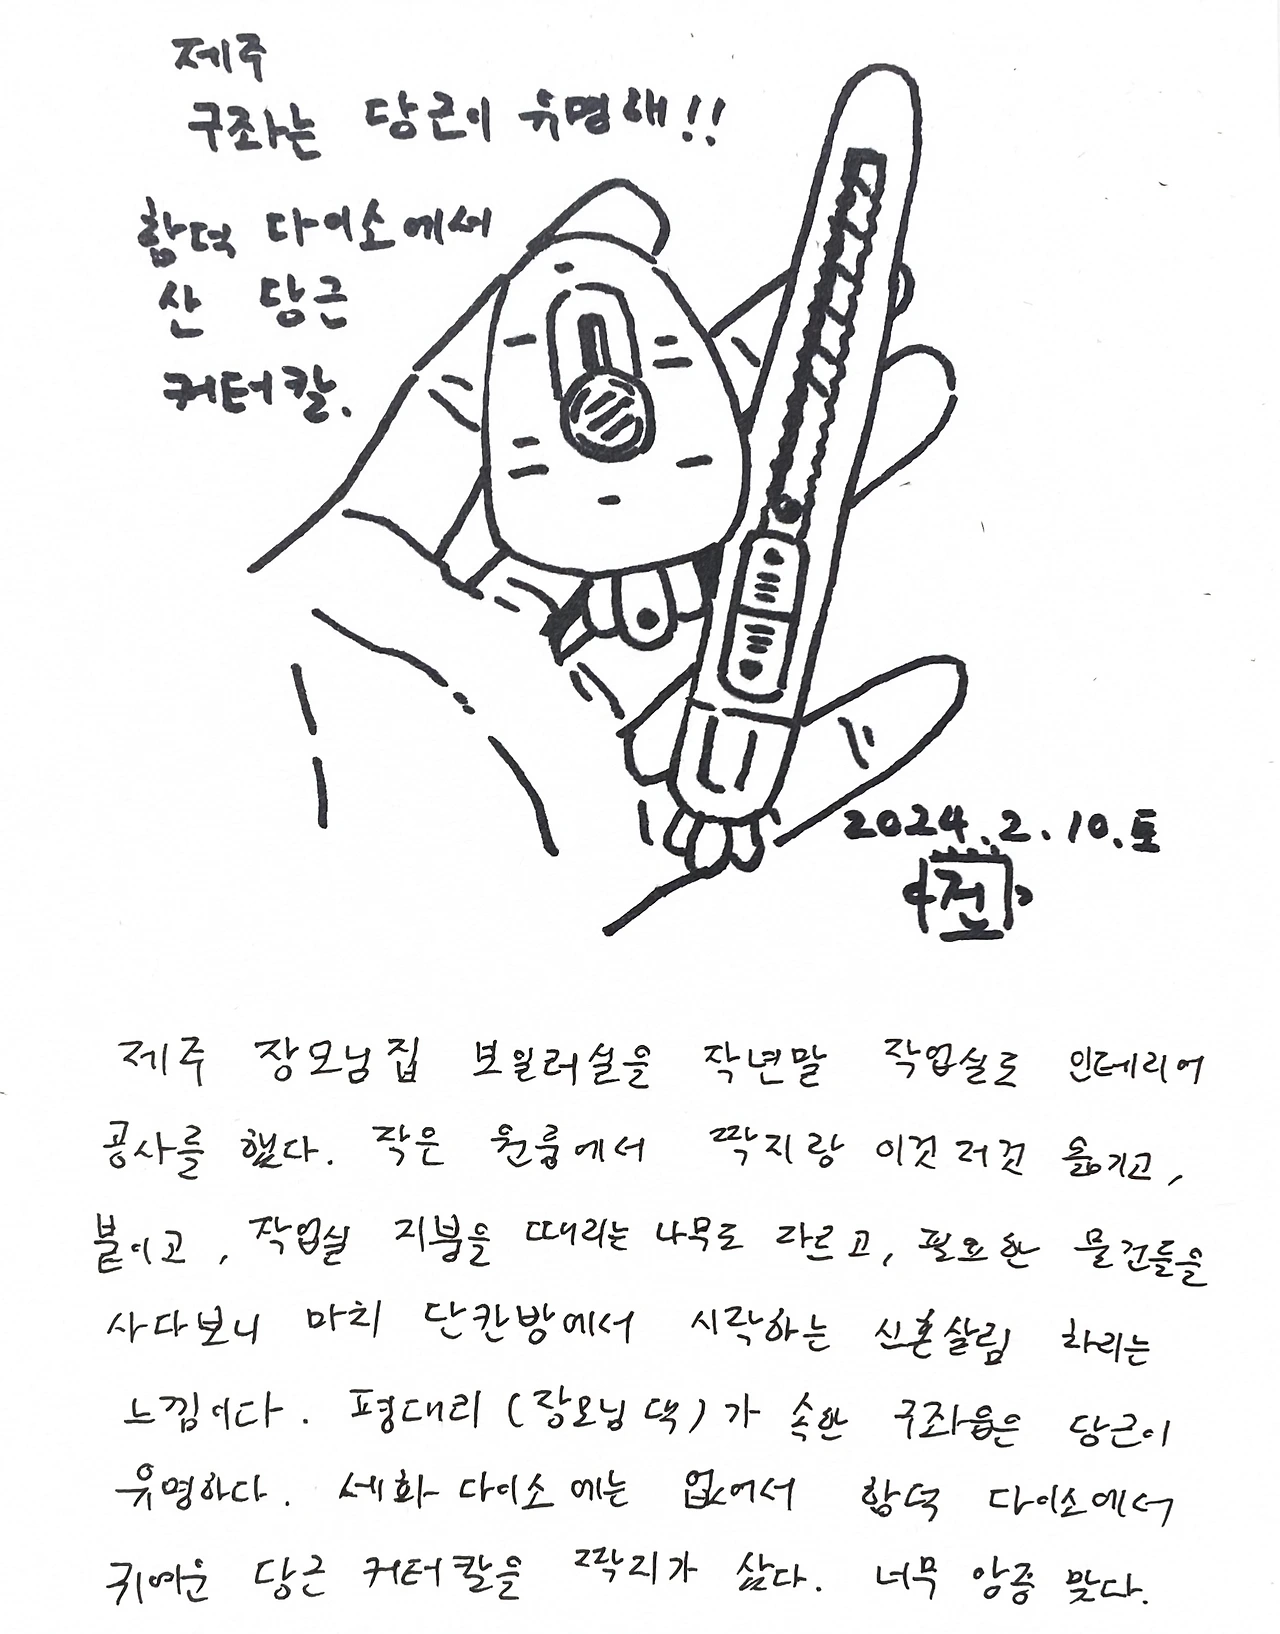 제주
구좌는 당근이 유명해!!
함덕 다이소에서
산 당근
커터칼.
2024.2.10.토
전
제주 장모님집 보일러실을 작년말 작업실로 인테리어
공사를 했다. 작은 원룸에서 딱지랑 이것저것 옮기고,
붙이고, 작업실 지붕을 때리는 나무도 자르고, 필요한 물건들을
사다보니 마치 단칸방에서 시작하는 신혼살림 차리는
느낌이다. 평대리(장모님댁)가 속한 구좌읍은 당근이
유명하다. 세화 다이소에는 없어서 함덕 다이소에서
귀여운 당근 커터칼을 딱지가 샀다. 너무 앙증맞다.